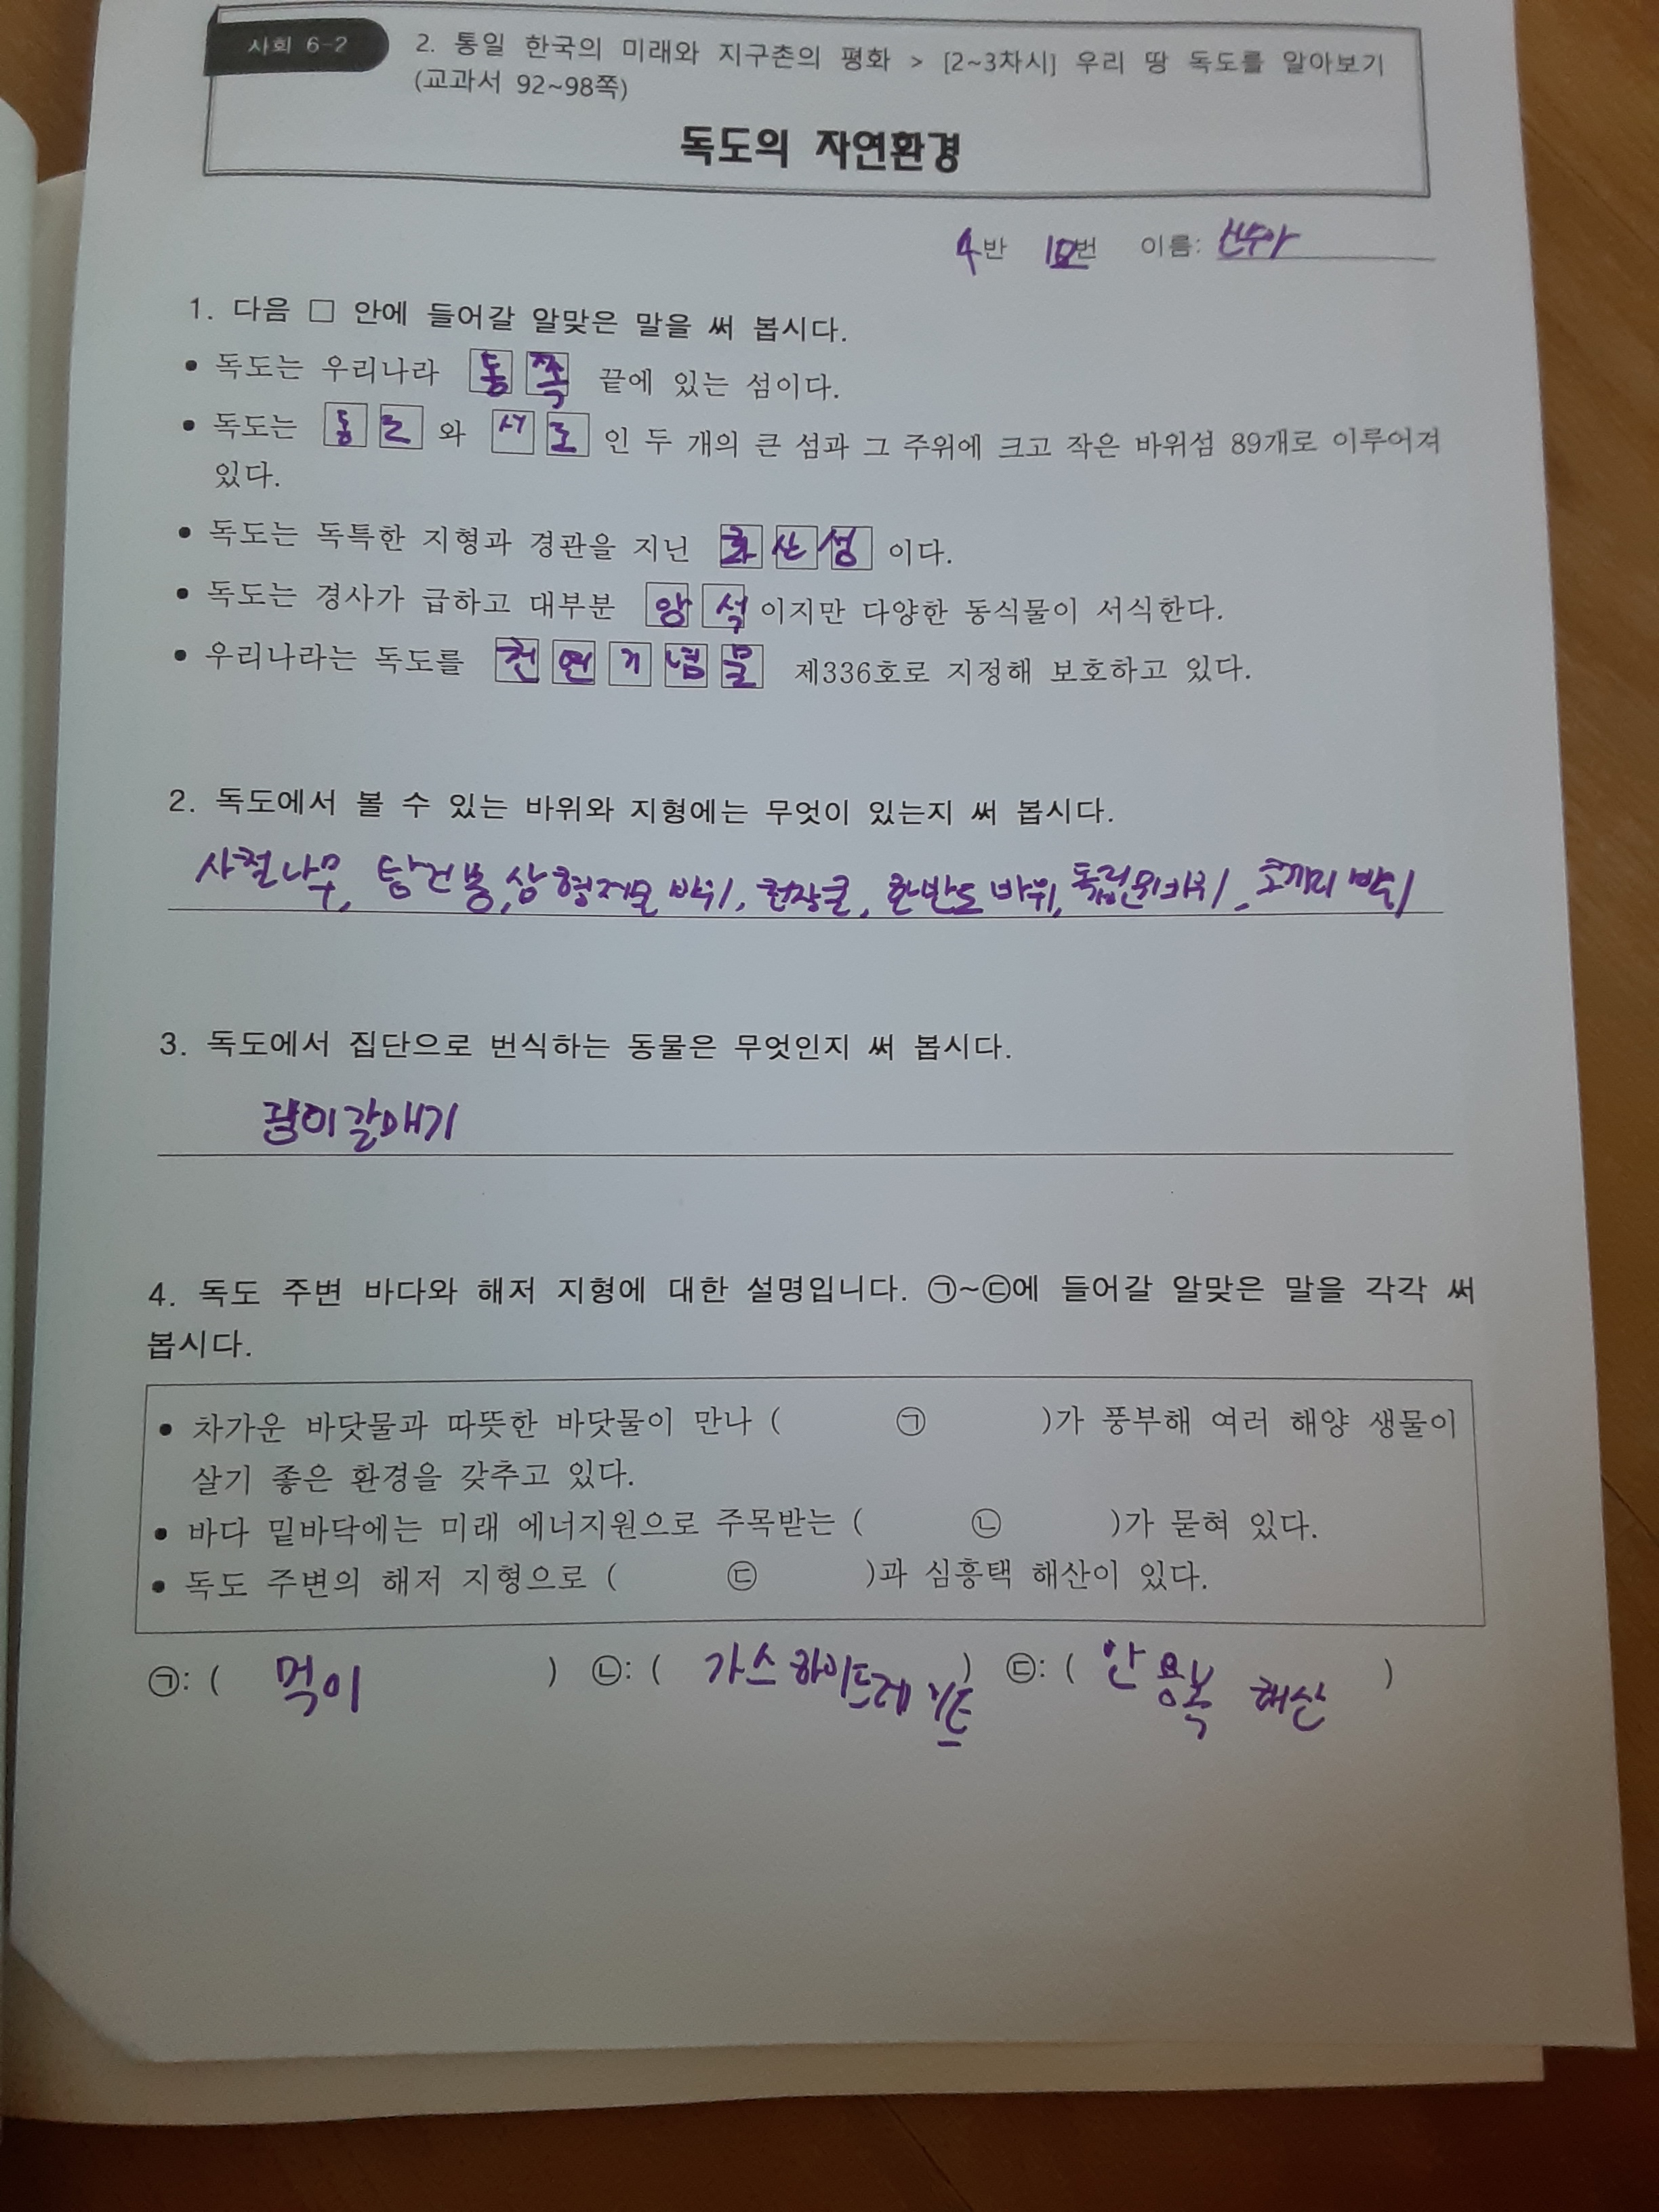 사회 6-2
2. 통일 한국의 미래와 지구촌의 평화 > [2~3차시] 우리 땅 독도를 알아보기
(교과서 92~98쪽)
독도의 자연환경
4반 10번 이름:
1. 다음 □ 안에 들어갈 알맞은 말을 써 봅시다.
• 독도는 우리나라 동쪽 끝에 있는 섬이다.
• 독도는 동도와 서도인 두 개의 큰 섬과 그 주위에 크고 작은 바위섬 89개로 이루어져
있다.
• 독도는 독특한 지형과 경관을 지닌 화산섬이다.
• 독도는 경사가 급하고 대부분 암석이지만 다양한 동식물이 서식한다.
• 우리나라는 독도를 천연기념물 제336호로 지정해 보호하고 있다.
2. 독도에서 볼 수 있는 바위와 지형에는 무엇이 있는지 써 봅시다.
사철나무, 탕건봉, 삼형제굴 바위, 천장굴, 한반도 바위, 독립문바위, 코끼리 바위
3. 독도에서 집단으로 번식하는 동물은 무엇인지 써 봅시다.
괭이갈매기
4. 독도 주변 바다와 해저 지형에 대한 설명입니다. ㉠~㉢에 들어갈 알맞은 말을 각각 써
봅시다.
• 차가운 바닷물과 따뜻한 바닷물이 만나 ( ㉠ )가 풍부해 여러 해양 생물이
살기 좋은 환경을 갖추고 있다.
• 바다 밑바닥에는 미래 에너지원으로 주목받는 ( ㉡ )가 묻혀 있다.
• 독도 주변의 해저 지형으로 ( ㉢ )과 심흥택 해산이 있다.
㉠: ( 먹이 ) ㉡: ( 가스 하이드레이트 ) ㉢: ( 안용복 해산 )